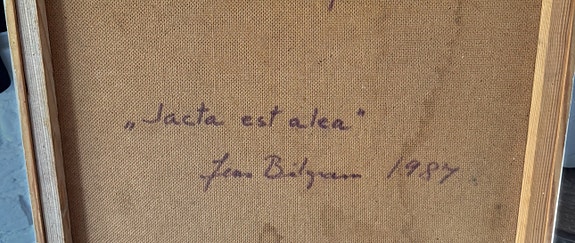 „Jacta est alea"
Jens Bilgram 1987